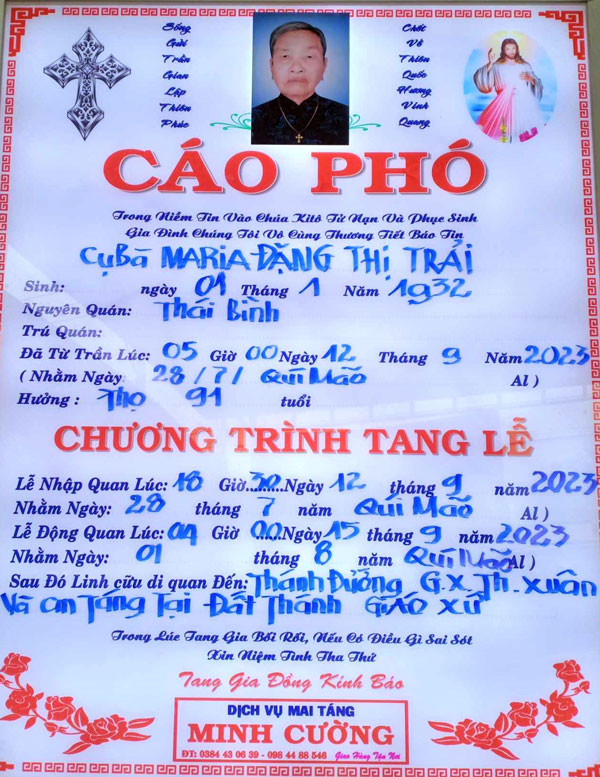 Sống
Gửi
Trần
Gian
Lập
Thiên
Phúc
Chết
Về
Thiên
Quốc
Hương
Vinh
Quang
CÁO PHÓ
Trong Niềm Tin Vào Chúa Kitô Tử Nạn Và Phục Sinh
Gia Đình Chúng Tôi Vô Cùng Thương Tiết Báo Tin
Cụ Bà MARIA ĐẶNG THỊ TRẢI
Sinh: ngày 01 Tháng 1 Năm 1932
Nguyên Quán: Thái Bình
Trú Quán:
Đã Từ Trần Lúc: 05 Giờ 00 Ngày 12 Tháng 9 Năm 2023
( Nhằm Ngày 28 / 7 / Quí Mão Al )
Hưởng : Thọ 91 tuổi
CHƯƠNG TRÌNH TANG LỄ
Lễ Nhập Quan Lúc: 18 Giờ 30 Ngày 12 tháng 9 năm 2023
Nhằm Ngày: 28 tháng 7 năm Quí Mão Al )
Lễ Động Quan Lúc: 04 Giờ 00 Ngày 15 tháng 9 năm 2023
Nhằm Ngày: 01 tháng 8 năm Quí Mão Al )
Sau Đó Linh cữu di quan Đến: Thánh Đường G.X. Th. Xuân
Và an Táng Tại Đất Thánh Giáo Xứ
Trong Lúc Tang Gia Bối Rối, Nếu Có Điều Gì Sai Sót
Xin Niệm Tình Tha Thứ
Tang Gia Đồng Kính Báo
DỊCH VỤ MAI TÁNG
MINH CƯỜNG
ĐT: 0384 43 06 39 - 098 44 88 546 Giao Hàng Tận Nơi